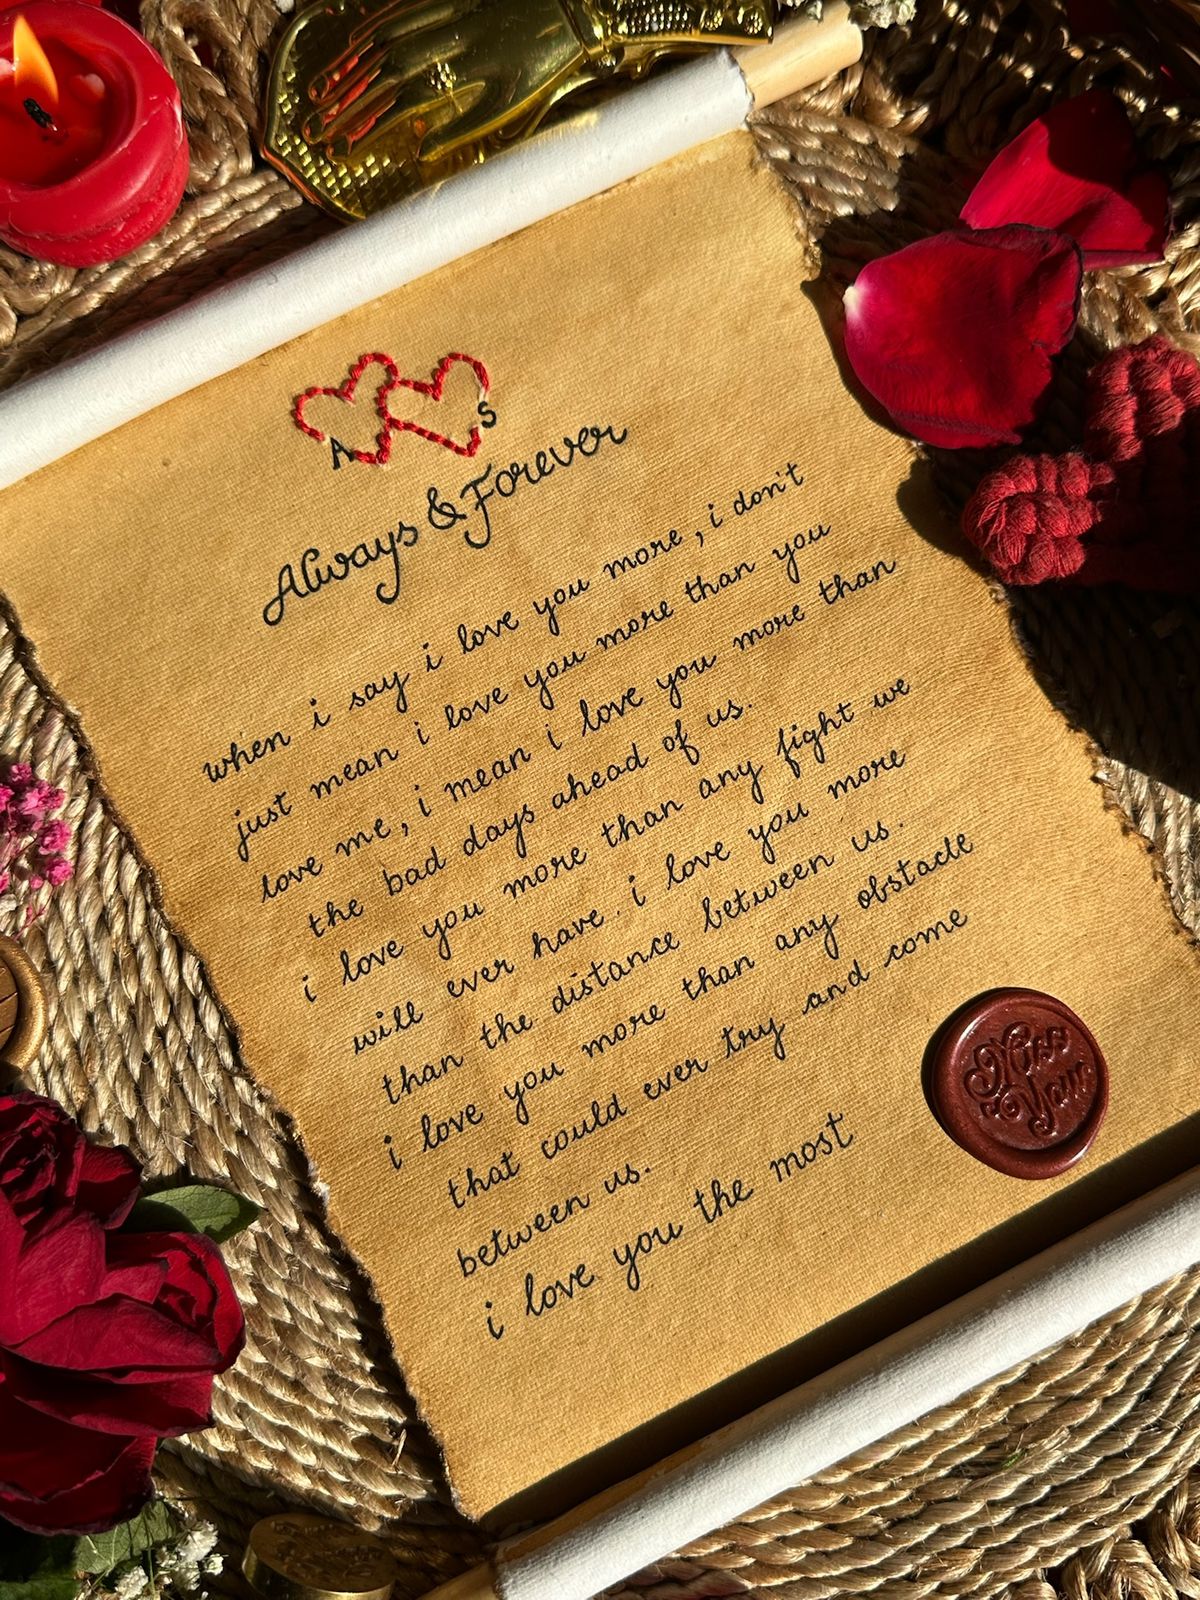 A S
Always & Forever
when i say i love you more, i don't
just mean i love you more than you
love me, i mean i love you more than
the bad days ahead of us.
i love you more than any fight we
will ever have. i love you more
than the distance between us.
i love you more than any obstacle
that could ever try and come
between us.
i love you the most
Miss
You